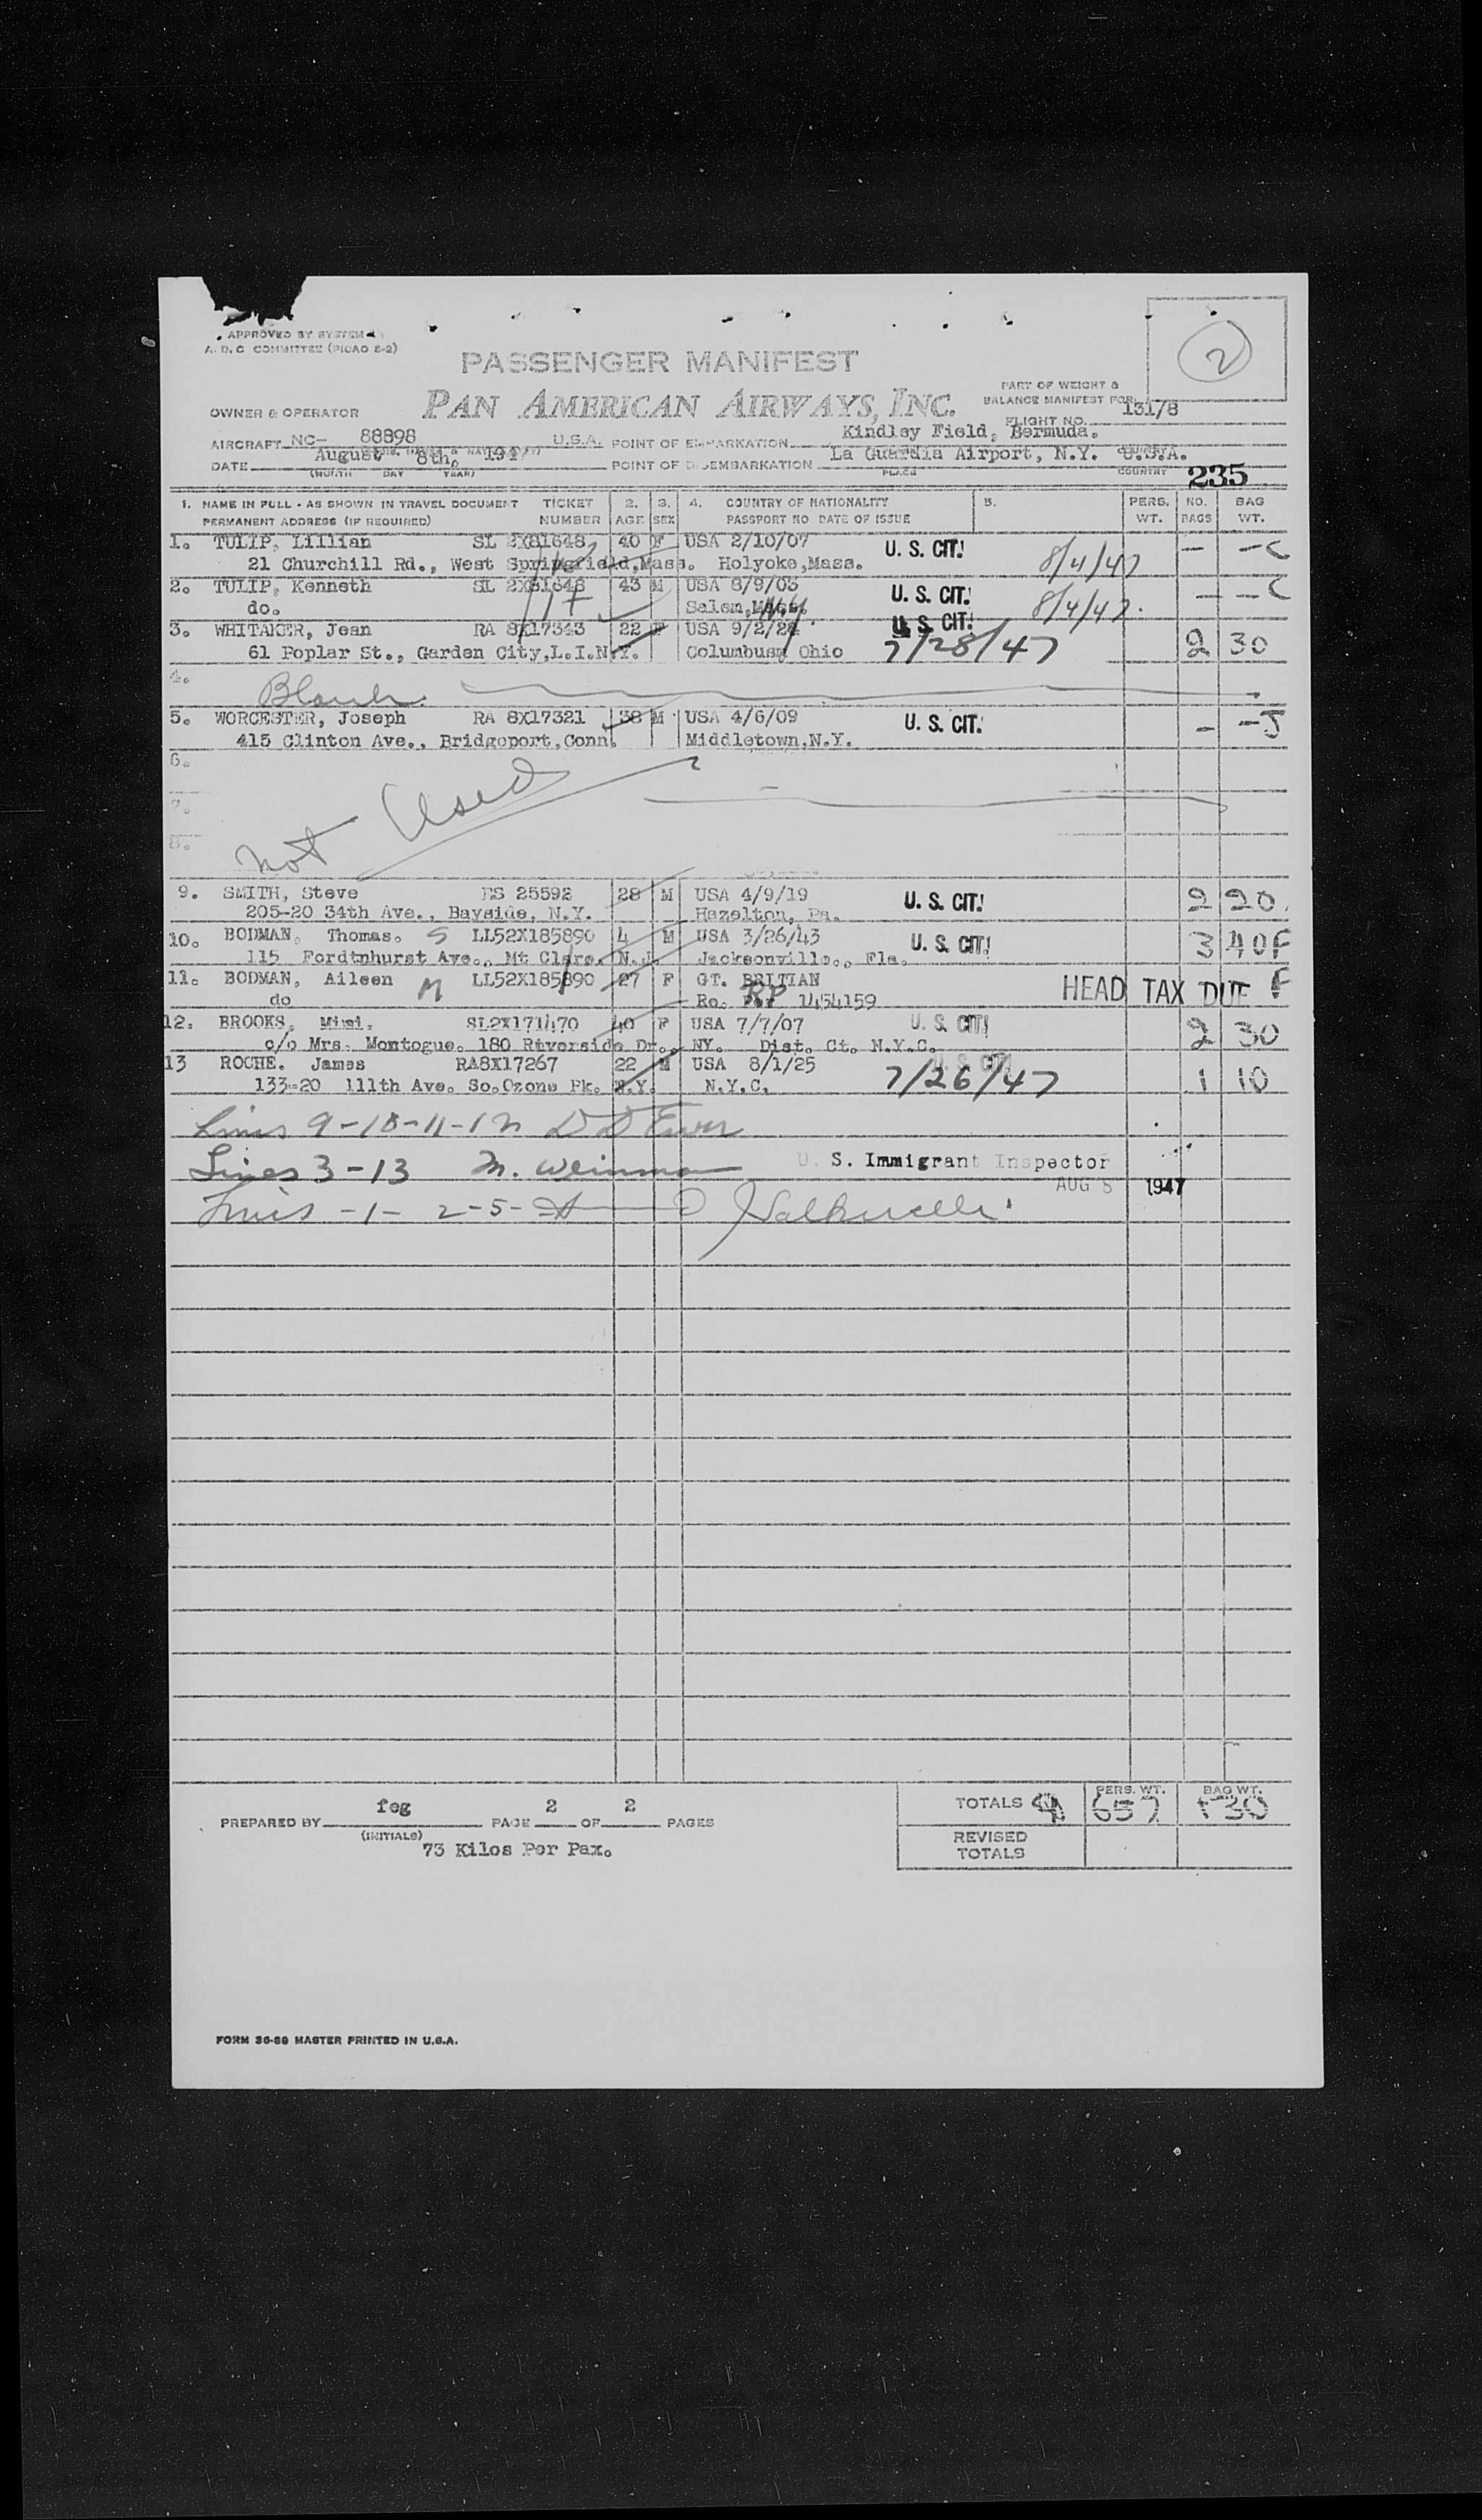 APPROVED BY SYSTEM
A. D. C COMMITTEE (PICAO 8-2)
2
PASSENGER MANIFEST
PART OF WEIGHT &
BALANCE MANIFEST FOR
PAN AMERICAN AIRWAYS, INC.
OWNER & OPERATOR
FLIGHT NO. 131/8
AIRCRAFT NC- 88898 U.S.A. POINT OF EMBARKATION Kindley Field, Bermuda.
DATE August 8th, 1947 POINT OF DISEMBARKATION La Guardia Airport, N.Y. U.S.A.
(MONTH DAY YEAR) PLACE COUNTRY
235
1. NAME IN FULL - AS SHOWN IN TRAVEL DOCUMENT TICKET 2. 3. 4. COUNTRY OF NATIONALITY 5. PERS. NO. BAG
PERMANENT ADDRESS (IF REQUIRED) NUMBER AGE SEX PASSPORT NO DATE OF ISSUE WT. BAGS WT.
1. TULIP, Lillian SL 2X81648 40 F USA 2/10/07 U. S. CIT. - -C
21 Churchill Rd., West Springfield, Mass. Holyoke, Mass. 8/4/47
2. TULIP, Kenneth SL 2X81648 43 M USA 8/9/03 U. S. CIT. - -C
do. Salem, 8/4/47.
3. WHITAKER, Jean RA 8X17343 22 F USA 9/2/24 U. S. CIT.
61 Poplar St., Garden City, L.I.N.Y. Columbus, Ohio 7/28/47 2 30
4. Blank
5. WORCESTER, Joseph RA 8X17321 38 M USA 4/6/09 U. S. CIT. - -J
415 Clinton Ave., Bridgeport, Conn. Middletown, N.Y.
6.
7.
8.
not Used
9. SMITH, Steve ES 25592 28 M USA 4/9/19 U. S. CIT. 2 20
205-20 34th Ave., Bayside, N.Y. Hazelton, Pa.
10. BODMAN, Thomas. S LL52X185890 4 M USA 3/26/43 U. S. CIT. 3 40F
115 Fordtnhurst Ave., Mt Clare. N.J. Jacksonville., Fla.
11. BODMAN, Aileen M LL52X185890 27 F GT. BRITIAN HEAD TAX DUE F
do Re. Per RP 1454159
12. BROOKS, Mimi. SL2X171470 40 F USA 7/7/07 U. S. CIT. 2 30
c/o Mrs. Montogue. 180 Riverside Dr., NY. Dist. Ct. N.Y.C.
13 ROCHE. James RA8X17267 22 M USA 8/1/25 U. S. CIT.
133-20 111th Ave. So.Ozone Pk. N.Y. N.Y.C. 7/26/47 1 10
Lines 9-10-11-12
Lines 3-13 M. Weinman U. S. Immigrant Inspector
AUG 8 1947
Lines -1- 2-5-
TOTALS PERS. WT. 657 BAG WT. 130
PREPARED BY feg PAGE 2 OF 2 PAGES
(INITIALS)
REVISED
TOTALS
73 Kilos Per Pax.
FORM 36-89 MASTER PRINTED IN U.S.A.